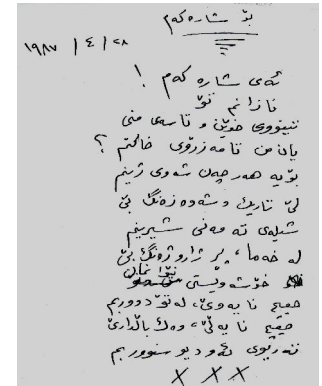 بۆ شارەکەم
١٩٨٧ / ٤ / ٢٨
ئەی شارە کەم !
نازانم تۆ
خوێن و تاسەی منی
یان من تامەزرۆی خاکتم ؟
بۆیە هەرچەن شەوی ژینم
لێ تاریک و شەوەزەنگ بێ
شیلەی تەمەنی شیرینم
لە خەما، پڕ ژاروژەنگ بێ
خۆشەویستی
هیچ نایەوێ، لە تۆ دووربم
هیچ نایەڵێ، وەک باڵداری
ئەودیو سنووربم
× × ×